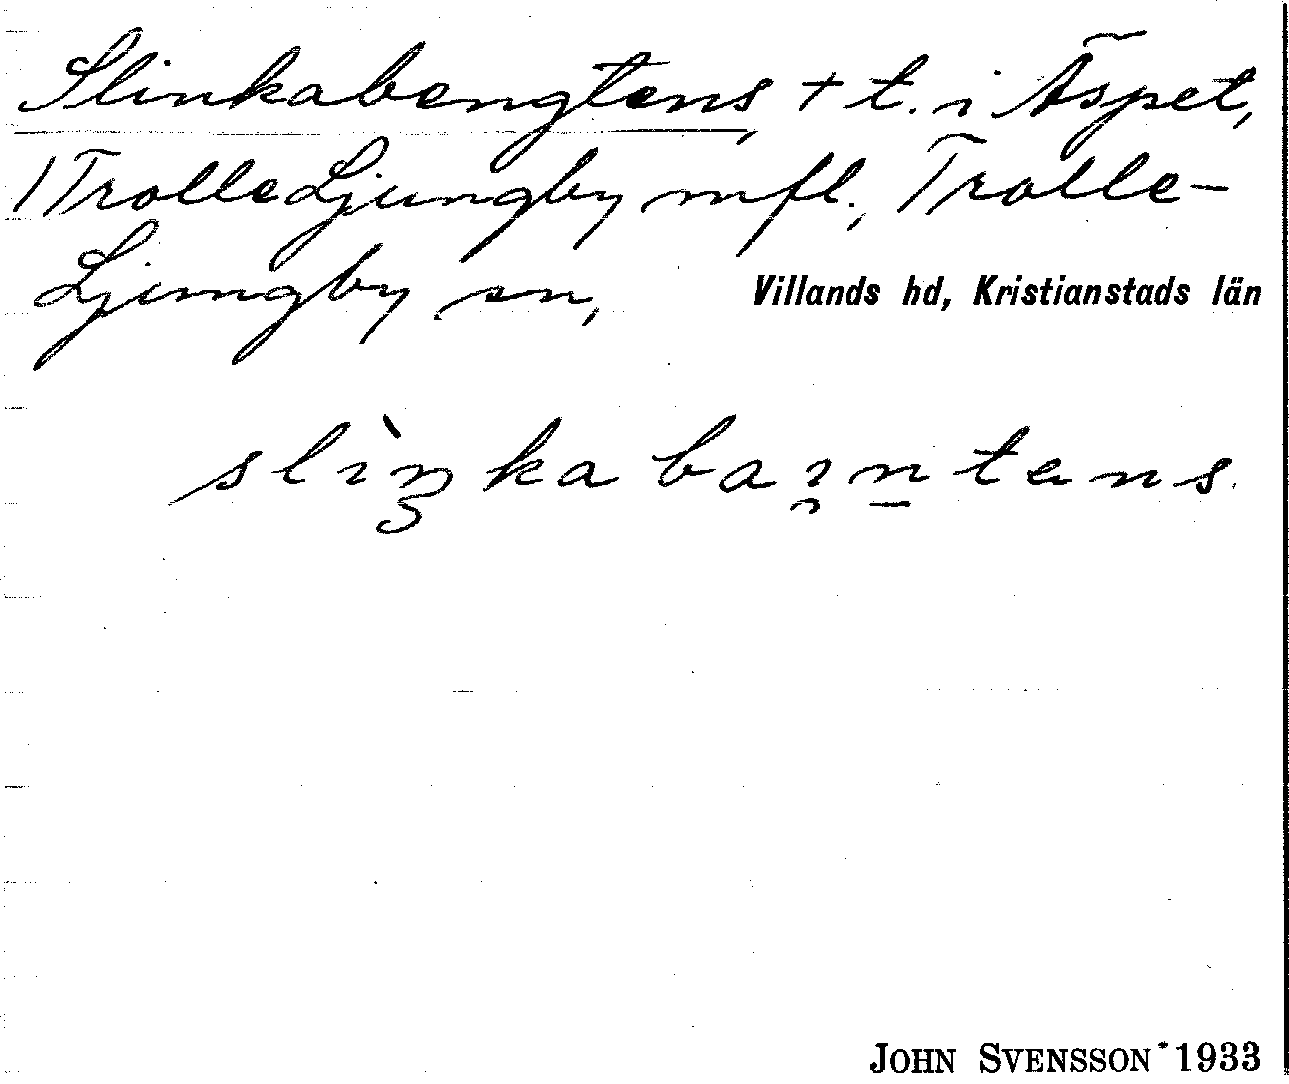 Slinkabengtens, + t. i Äspet,
1 Trolle Ljungby m fl., Trolle-
Ljungby sn, Villands hd, Kristianstads län
slìŋka bai̯n̠tens
JOHN SVENSSON 1933